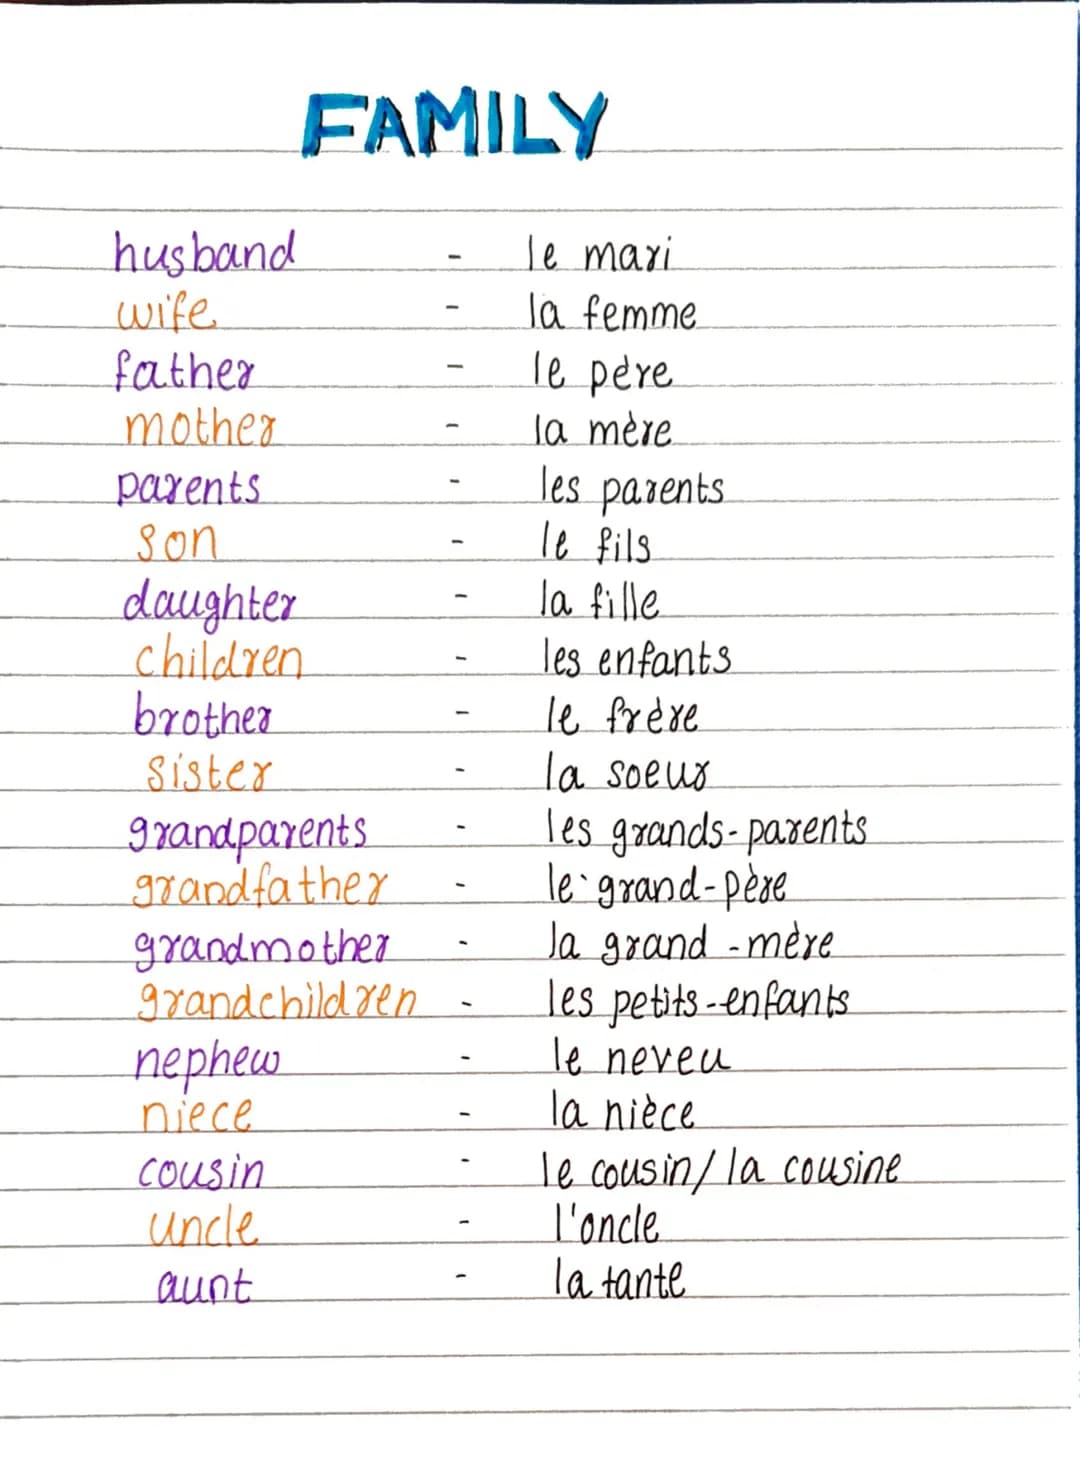 FAMILY
husband - le mari
wife - la femme
father - le père
mother - la mère
parents - les parents
son - le fils
daughter - la fille
children - les enfants
brother - le frère
sister - la soeur
grandparents - les grands-parents
grandfather - le grand-père
grandmother - la grand-mère
grandchildren - les petits-enfants
nephew - le neveu
niece - la nièce
cousin - le cousin/la cousine
uncle - l'oncle
aunt - la tante